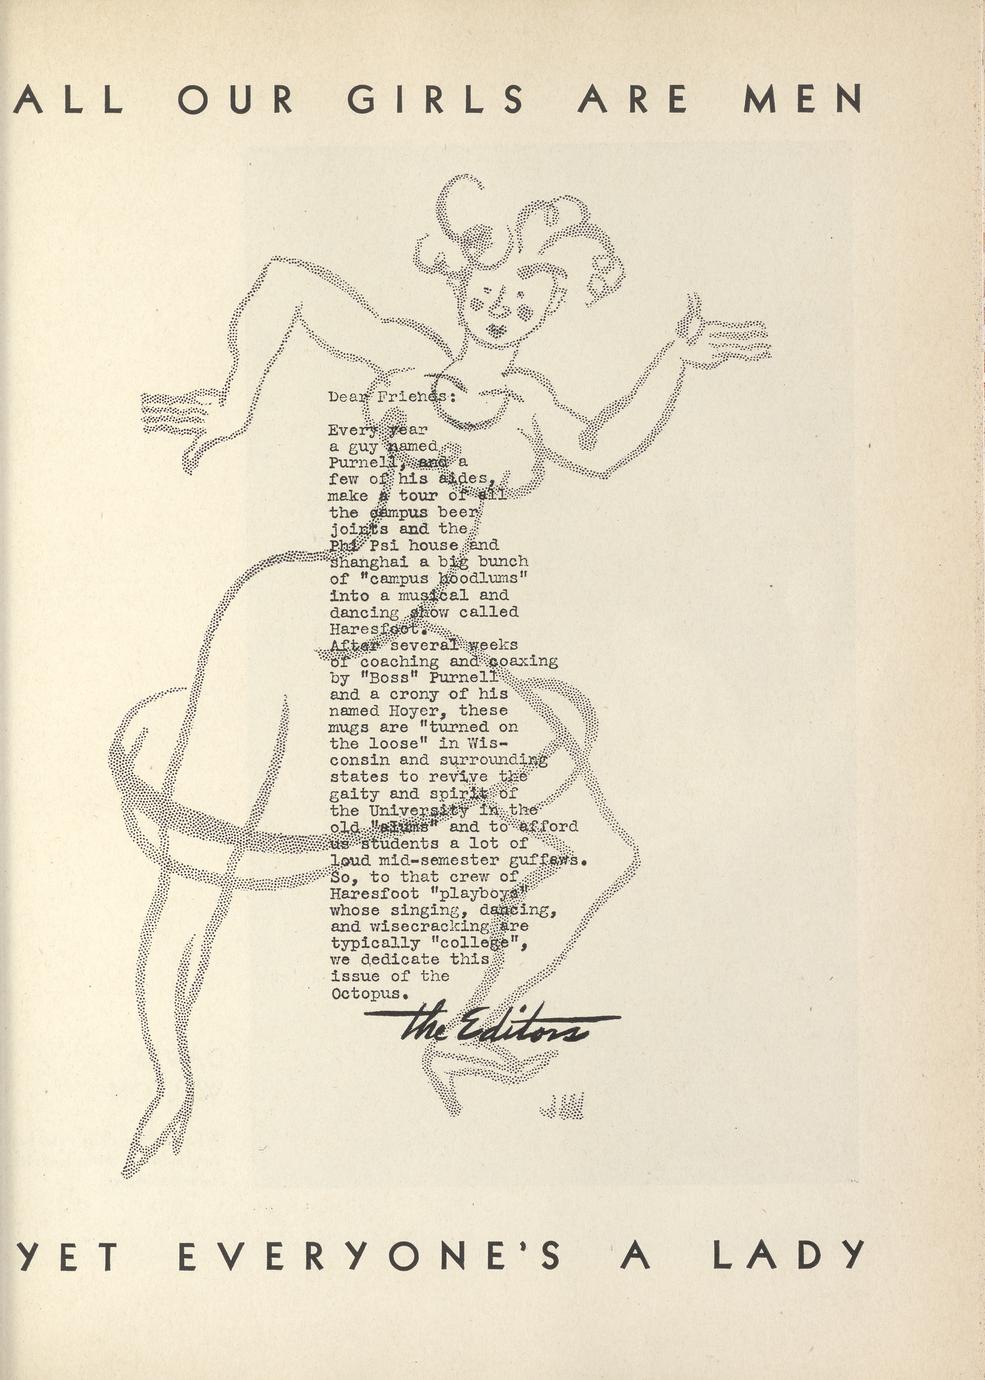 ALL OUR GIRLS ARE MEN
Dear Friends:
Every year
a guy named
Purnell, and a
few of his aides,
make a tour of all
the campus beer
joints and the
Phi Psi house and
shanghai a big bunch
of "campus hoodlums"
into a musical and
dancing show called
Haresfoot.
After several weeks
of coaching and coaxing
by "Boss" Purnell
and a crony of his
named Hoyer, these
mugs are "turned on
the loose" in Wis-
consin and surrounding
states to revive the
gaity and spirit of
the University in the
old "alums" and to afford
us students a lot of
loud mid-semester guffaws.
So, to that crew of
Haresfoot "playboys"
whose singing, dancing,
and wisecracking are
typically "college",
we dedicate this
issue of the
Octopus.
The Editors
YET EVERYONE'S A LADY